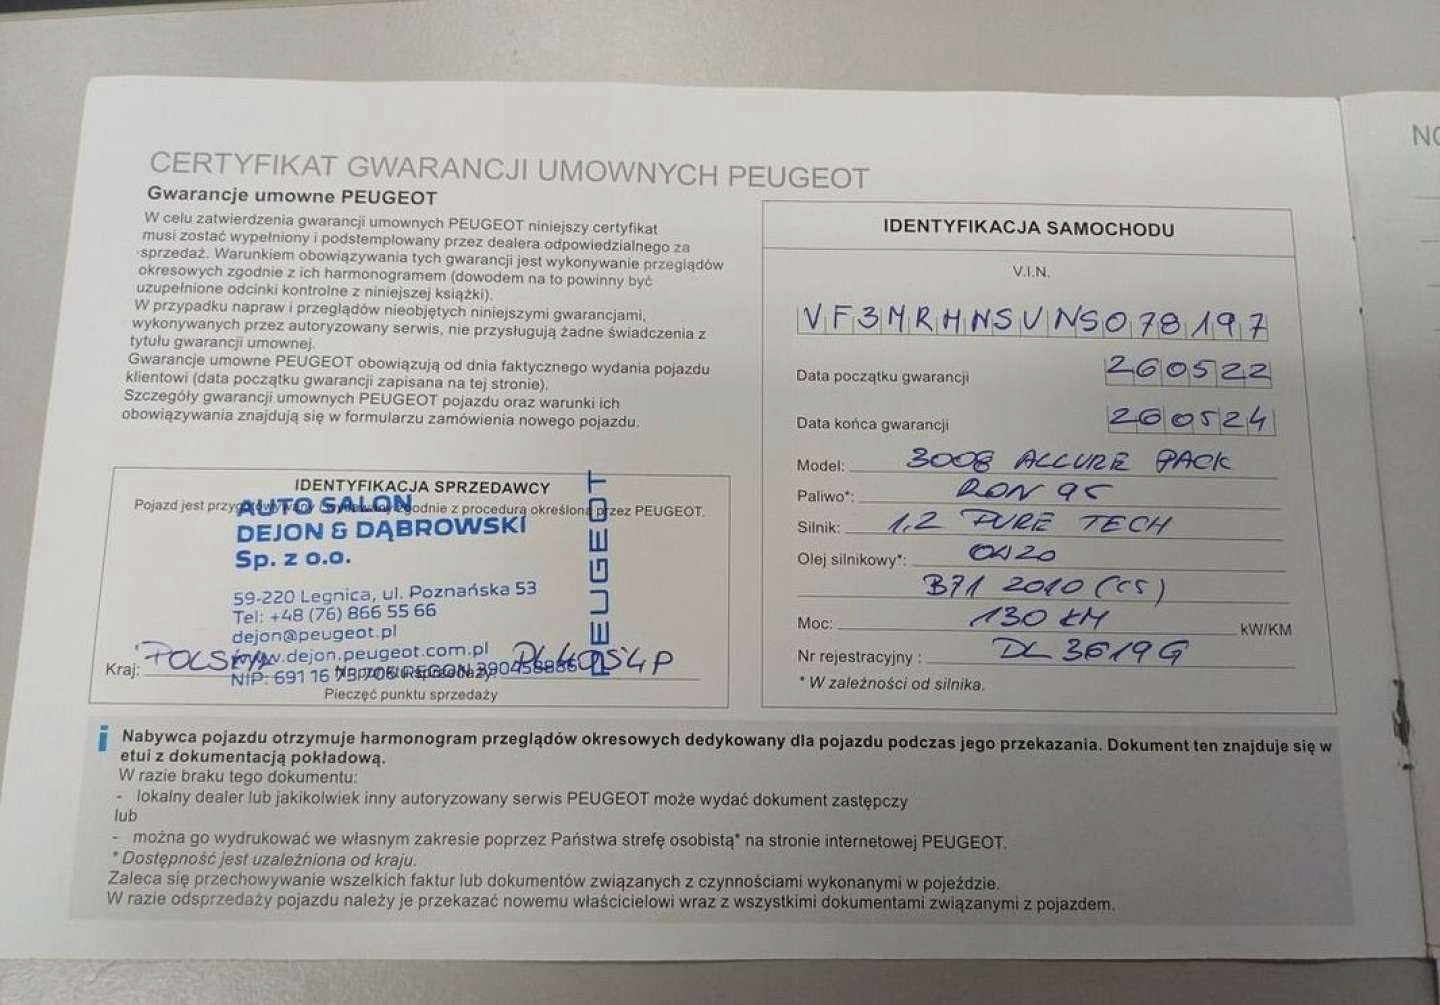 CERTYFIKAT GWARANCJI UMOWNYCH PEUGEOT
Gwarancje umowne PEUGEOT
W celu zatwierdzenia gwarancji umownych PEUGEOT niniejszy certyfikat
musi zostać wypełniony i podstemplowany przez dealera odpowiedzialnego za
sprzedaż. Warunkiem obowiązywania tych gwarancji jest wykonywanie przeglądów
okresowych zgodnie z ich harmonogramem (dowodem na to powinny być
uzupełnione odcinki kontrolne z niniejszej książki).
W przypadku napraw i przeglądów nieobjętych niniejszymi gwarancjami,
wykonywanych przez autoryzowany serwis, nie przysługują żadne świadczenia z
tytułu gwarancji umownej.
Gwarancje umowne PEUGEOT obowiązują od dnia faktycznego wydania pojazdu
klientowi (data początku gwarancji zapisana na tej stronie).
Szczegóły gwarancji umownych PEUGEOT pojazdu oraz warunki ich
obowiązywania znajdują się w formularzu zamówienia nowego pojazdu.
IDENTYFIKACJA SPRZEDAWCY
Pojazd jest zgodnie z procedurą określoną przez PEUGEOT.
AUTO SALON
DEJON & DĄBROWSKI
Sp. z o.o.
59-220 Legnica, ul. Poznańska 53
Tel: +48 (76) 866 55 66
dejon@peugeot.pl
www.dejon.peugeot.com.pl
NIP: 691 16 REGON
PEUGEOT
Kraj: POLSKA
Pieczęć punktu sprzedaży
IDENTYFIKACJA SAMOCHODU
V.I.N.
VF3MRHNSUNS078197
Data początku gwarancji 260522
Data końca gwarancji 260524
Model: 3008 ALLURE PACK
Paliwo*: RON 95
Silnik: 1,2 PURE TECH
Olej silnikowy*: 0W20
B71 2010 (C5)
Moc: 130 KM kW/KM
Nr rejestracyjny : DL 3619G
* W zależności od silnika.
i Nabywca pojazdu otrzymuje harmonogram przeglądów okresowych dedykowany dla pojazdu podczas jego przekazania. Dokument ten znajduje się w
etui z dokumentacją pokładową.
W razie braku tego dokumentu:
- lokalny dealer lub jakikolwiek inny autoryzowany serwis PEUGEOT może wydać dokument zastępczy
lub
- można go wydrukować we własnym zakresie poprzez Państwa strefę osobistą* na stronie internetowej PEUGEOT.
* Dostępność jest uzależniona od kraju.
Zaleca się przechowywanie wszelkich faktur lub dokumentów związanych z czynnościami wykonanymi w pojeździe.
W razie odsprzedaży pojazdu należy je przekazać nowemu właścicielowi wraz z wszystkimi dokumentami związanymi z pojazdem.